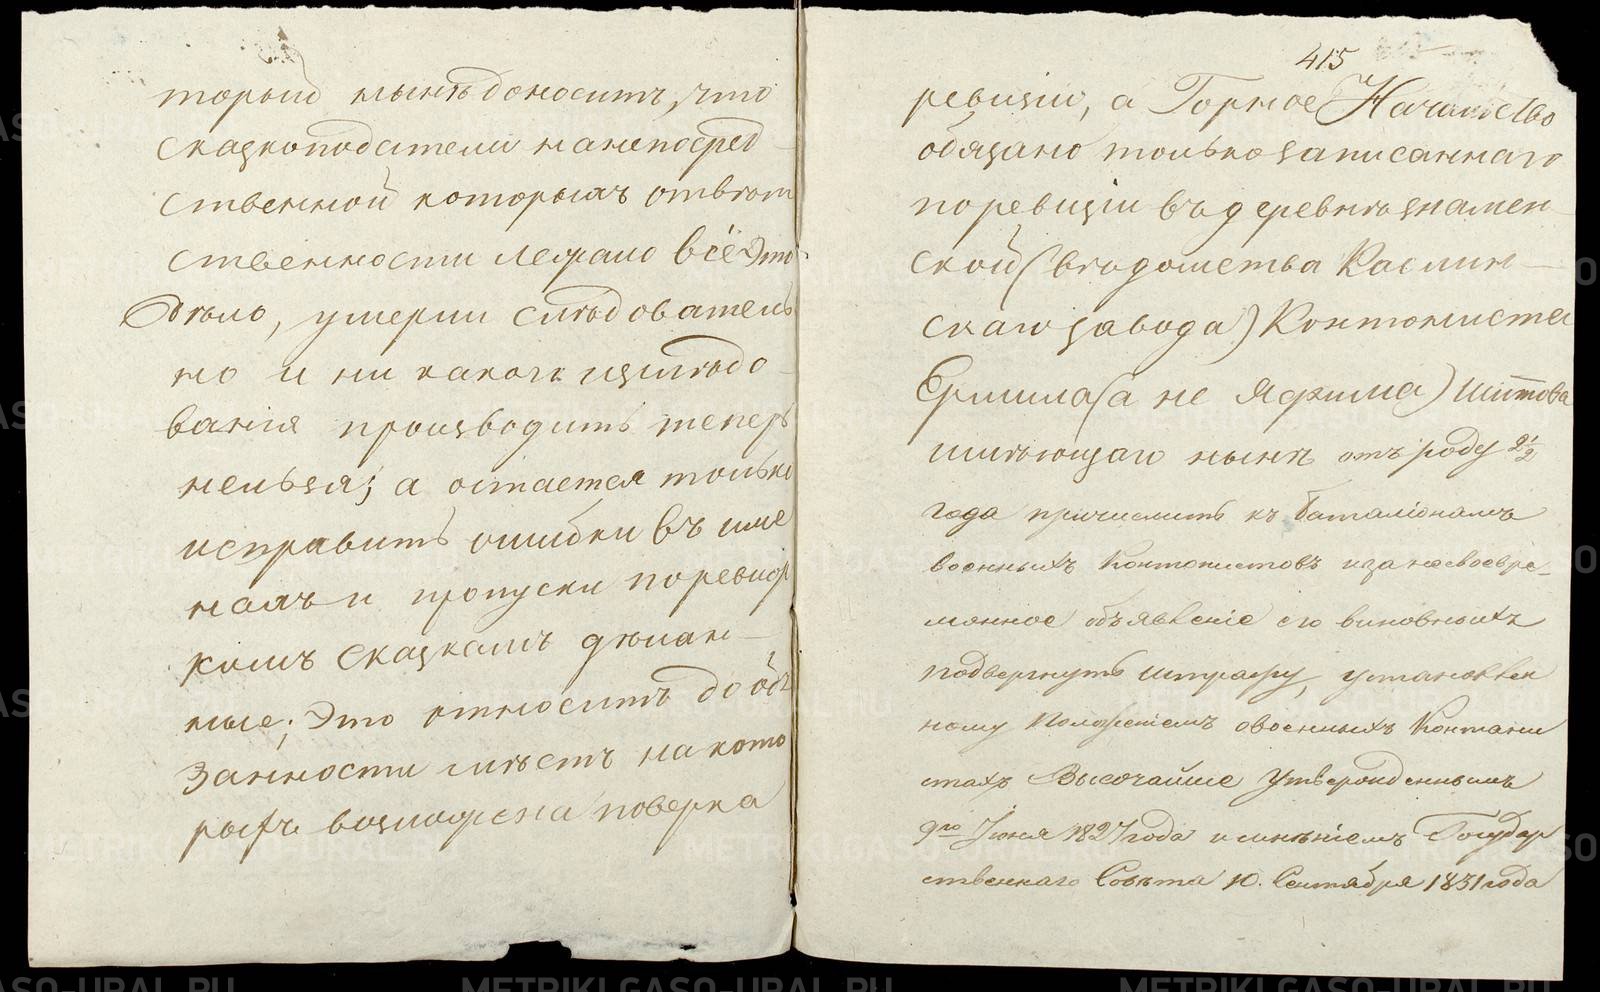 торый нынѣ доноситъ, что
сказкоподатели на непосред
ственной которыхъ отвѣт
ственности лежало всё это
дѣло, умерли слѣдователь
но и ни какого изслѣдо
ванія производить теперь
нельзя; а остается только
исправить ошибки въ име
нахъ и пропуски по ревиз
кимъ сказкамъ дѣлан
ные; Это относитъ до обя
занности мѣстъ на кото
рыхъ возложена поверка
415
ревизіи, а Горное Начальство
обязано только записаннаго
по ревизіи въ деревнѣ Знамен
ской (вѣдомства Каслин
скаго завода) Кантониста
Ермила (а не Яфима) Шитова
имѣющаго нынѣ отъ роду 2½
года причислить къ баталіонамъ
военныхъ Кантонистовъ и за несвоевре-
менное объявленіе его виновныхъ
подвергнуть штрафу, установлен
ному Положеніемъ о военныхъ Кантони
стахъ Высочайше утвержденнымъ
9го Іюня 1827 года и мнѣніемъ Государ
ственнаго Совѣта 10. Сентября 1831 года
METRIKI.GASO-URAL.RU